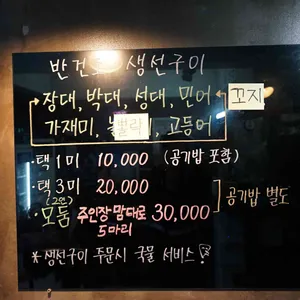 반건조 생선구이
장대, 박대, 성대, 민어 꼬지
가재미, 볼락, 고등어
· 택 1미 10,000 (공기밥 포함)
· 택 3미 20,000
· 모둠 주인장 맘대로 30,000
5마리
공기밥 별도
* 생선구이 주문시 국물 서비스!